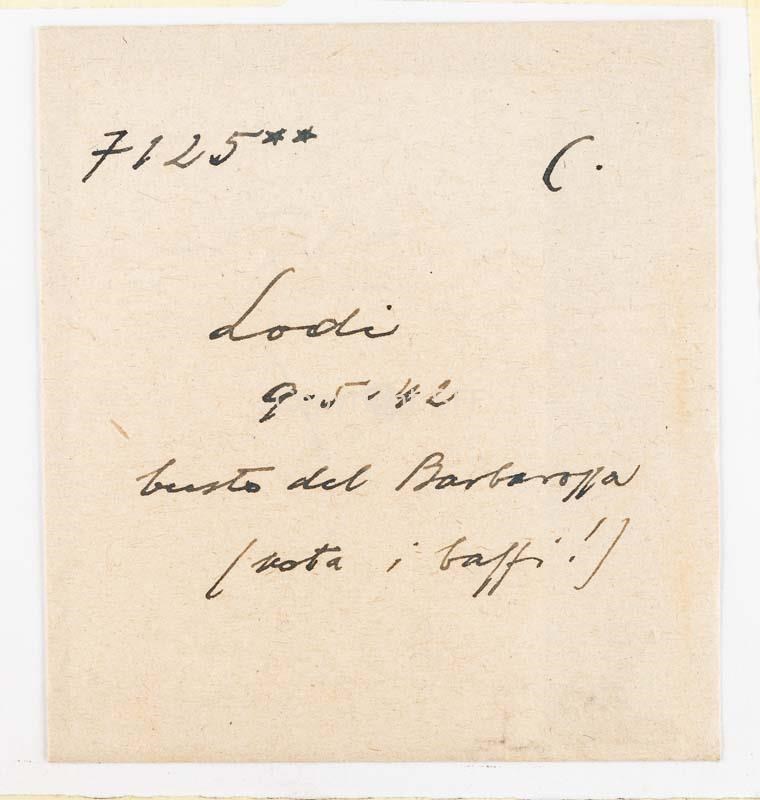 7125** C.
Lodi
9.5.42
busto del Barbarossa
(nota i baffi!)